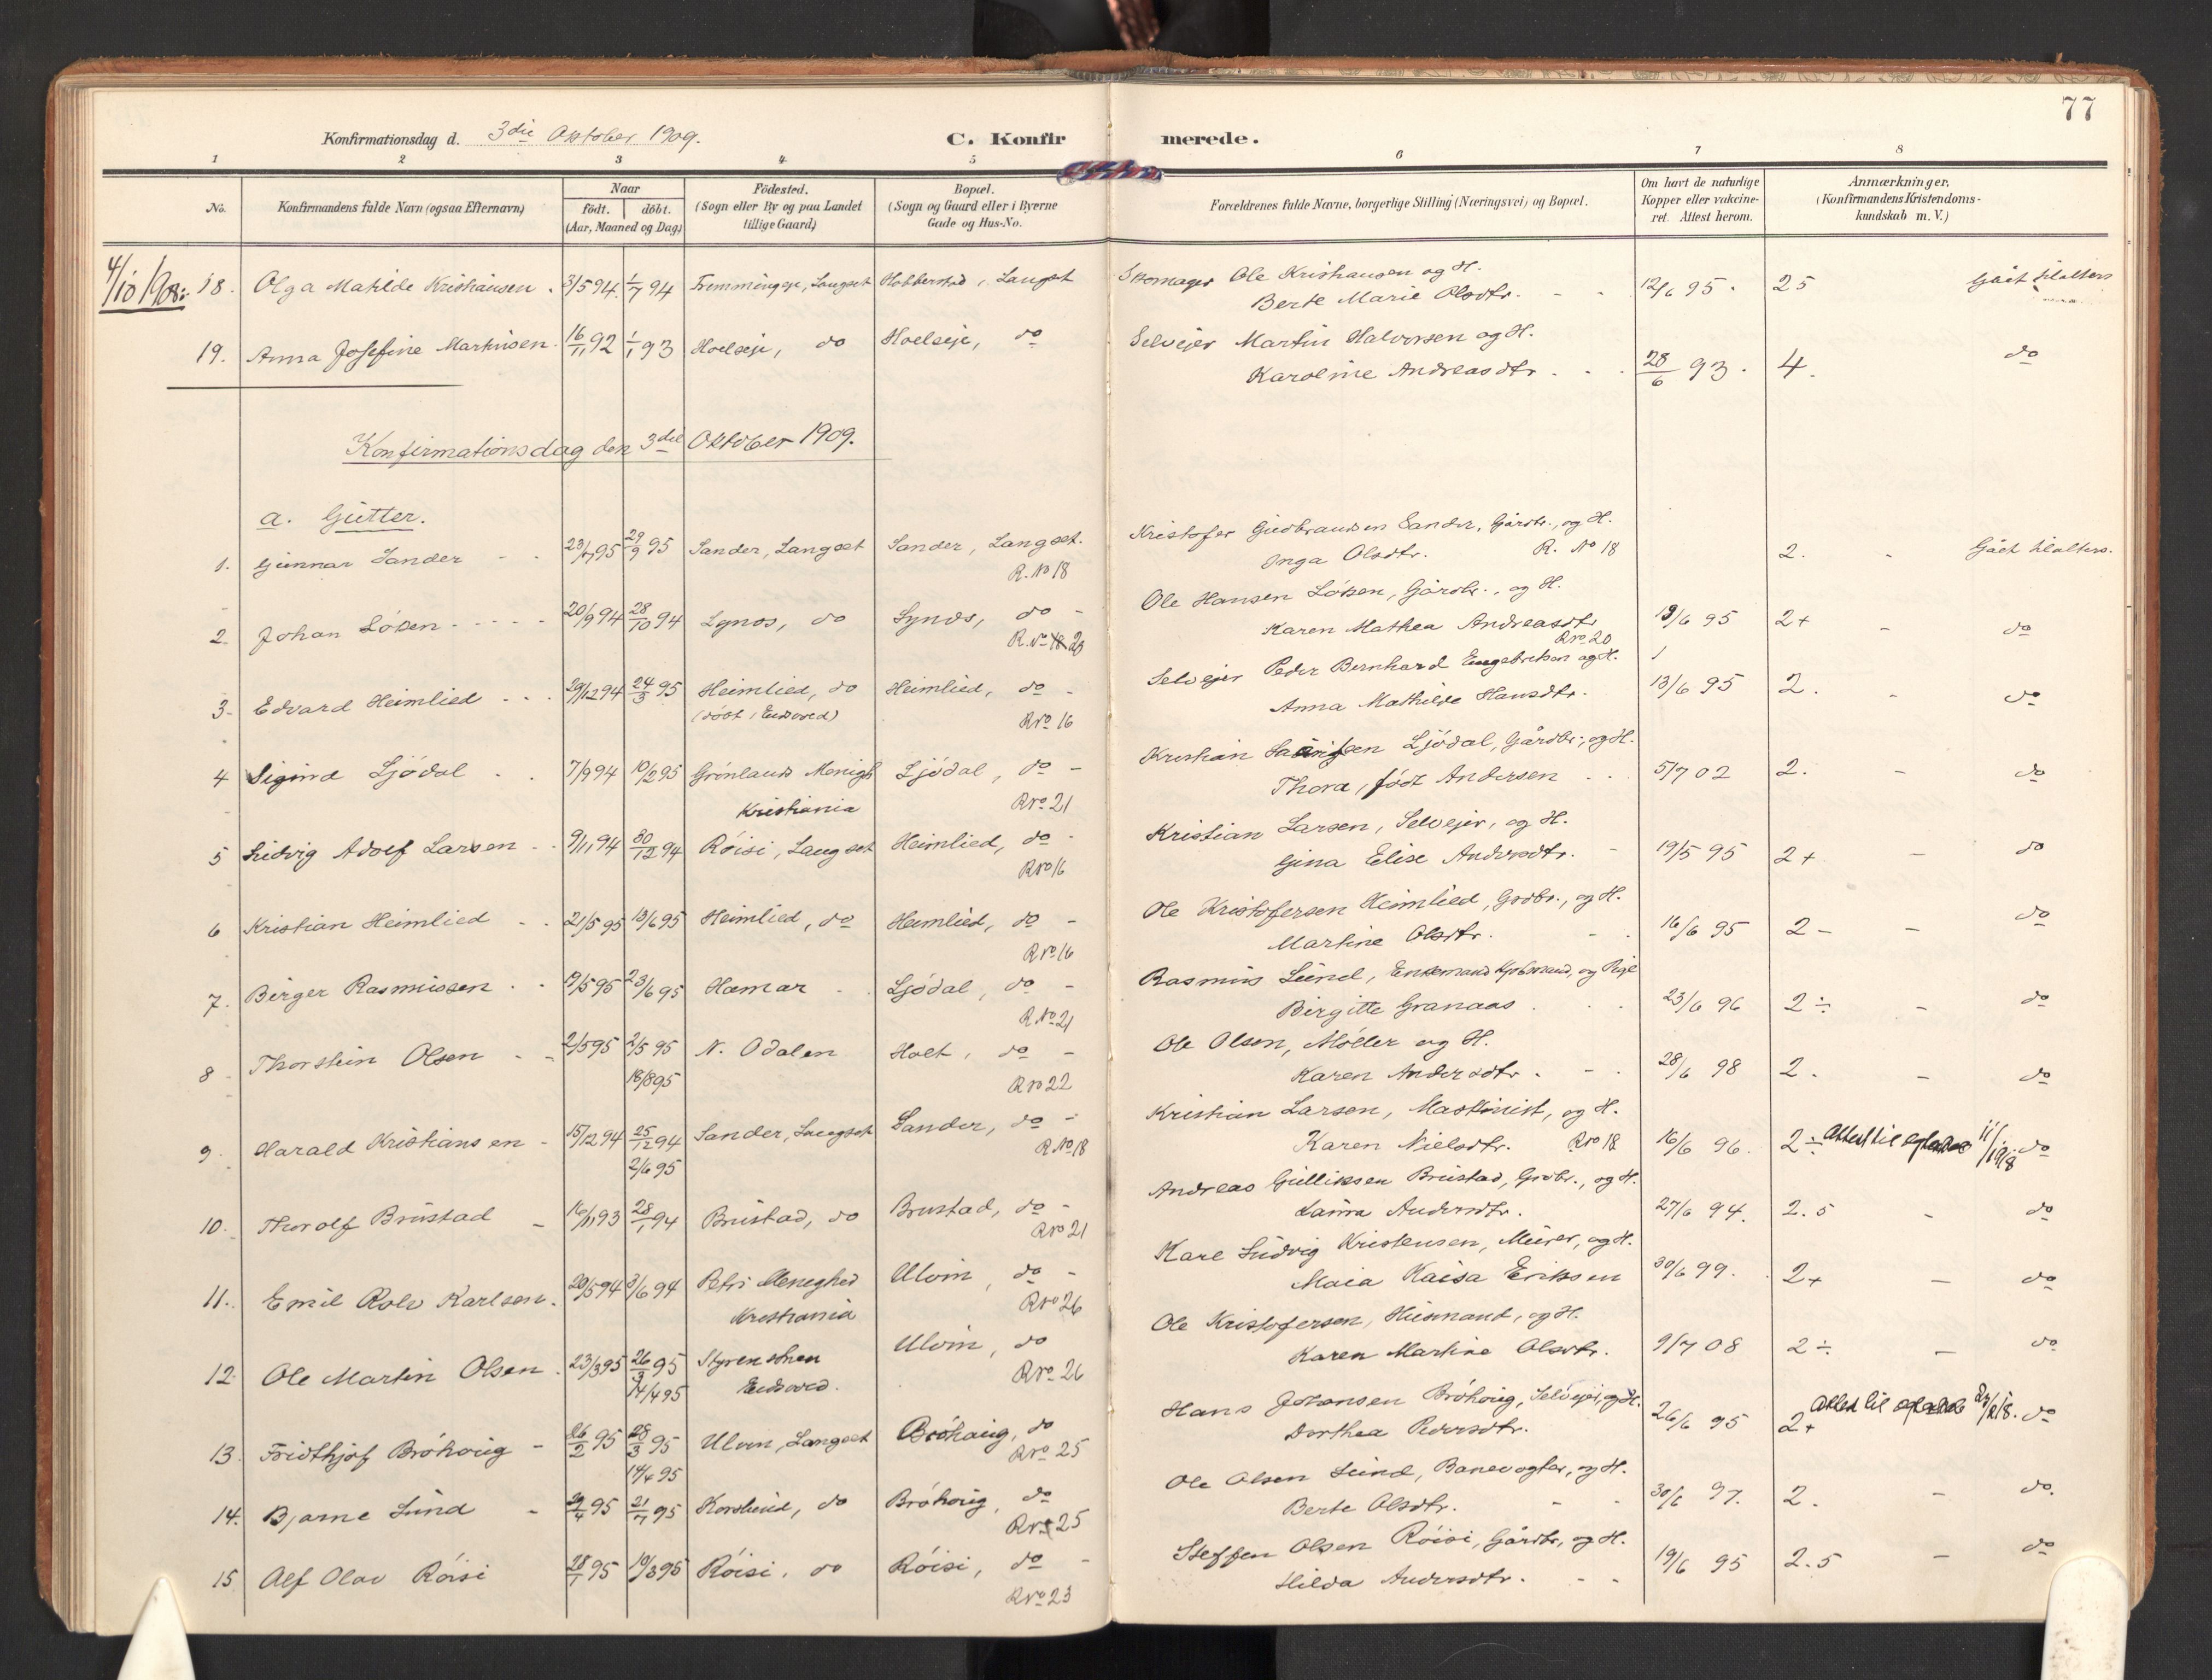 77
Konfirmationsdag d. 3die Oktober 1909.
C. Konfirmerede.
1 2 3 4 5 6 7 8
No.
Konfirmandens fulde Navn (ogsaa Efternavn)
Naar
født. døbt.
(Aar, Maaned og Dag)
Fødested.
(Sogn eller By og paa Landet
tillige Gaard)
Bopæl.
(Sogn og Gaard eller i Byerne
Gade og Hus-No.
Forældrenes fulde Navne, borgerlige Stilling (Næringsvei) og Bopæl.
Om havt de naturlige
Kopper eller vakcine-
ret. Attest herom.
Anmærkninger.
(Konfirmandens Kristendoms-
kundskab m. V.)
4/10 1908: 18. Olga Matilde Kristiansen. 3/5 94. 1/7 94 Langset Langset Skomager Ole Kristiansen og H. 12/6 95. 25 Gået til alters
Berte Marie Olsdtr.
19. Anna Josefine Martinsen. 16/11 92 1/1 93 Hoelseje, do Hoelseje, do Selvejer Martin Halvorsen og H. do
Karoline Andreasdtr. 28/6 93. 4.
Konfirmationsdag den 3die Oktober 1909.
a. Gutter.
1. Gunnar Sander 23/7 95 29/9 95 Sander, Langset Sander, Langset. Kristofer Gudbrandsen Sander, Gårdbr., og H. 2. Gået til alters.
R. No 18 Inga Olsdtr. R. No 18
2. Johan Løken 20/9 94 28/10 94 Lynds, do Lynds, do Ole Hansen Løken, Gårdbr., og H. 2+ do
R. No 20 Karen Mathea Andreasdtr. 19/6 95
R No 20
3. Edvard Heimlied 29/12 94 24/3 95 Heimlied, do Heimlied, do Selvejer Peder Bernhard Engebretsen og H. 13/6 95 2. do
(døbt i Eidsvold) R No 16 Anna Mathilde Hansdtr.
4 Sigurd Ljødal 7/9 94 10/2 95 Grønlands Menigh Ljødal, do Kristian Ljødal, Gårdbr., og H. 5/7 02 2. do
Kristiania R No 21 Thora, født Andersen
5 Ludvig Adolf Larsen 9/11 94 30/12 94 Røisi, Langset Heimlied, do Kristian Larsen, Selvejer, og H. 19/5 95 2+ do
R No 16 Gina Elise Andersdtr.
6 Kristian Heimlied 21/5 95 13/6 95 Heimlied, do Heimlied, do Ole Kristofersen Heimlied, Grdbr., og H. 16/6 95 2- do
R No 16 Martine Olsdtr.
7. Birger Rasmussen 19/5 95 23/6 95 Hamar Ljødal, do Rasmus Lund, Enkemand og Pige 23/6 96 2÷ do
R. No 21 Birgitte Granaas
8 Thorstein Olsen 2/5 95 2/5 95 N. Odalen Holt, do Ole Olsen, Møller og H. 28/6 98 2. do
18/8 95 R No 22 Karen Andersdtr.
9. Harald Kristiansen 15/12 94 25/12 94 Sander, Langset Sander, do Kristian Larsen, Maskinist, og H. 16/6 96. 2÷ do
2/6 95 R. No 18 Karen Nielsdtr. R No 18
10. Thorolf Brustad 16/11 93 28/1 94 Brustad, do Brustad, do Andreas Gulliksen Brustad, Grdbr., og H. 27/6 94. 2.5 do
R No 21 Laura Andersdtr.
11. Emil Rolv Karlsen. 20/5 94 3/6 94 Petri Menighed Ulvin, do Karl Ludvig Kristensen, Murer, og H. 30/6 99. 2+ do
Kristiania R No 26 Maia Kaisa Eriksen
12. Ole Martin Olsen 23/3 95 26/3 95 Ulvin, do Ole Kristofersen, Husmand, og H. 9/7 08 2÷ do
14/4 95 Eidsvold. R No 26 Karen Martine Olsdtr.
13. Fridthjof Brøhoug 26/2 95 28/3 95 Ulvin, Langset Brøhaug, do Hans Johansen Brøhoug, Selvejer, og H. 26/6 95 2+ do
14/4 95 R No 25 Dorthea Pedersdtr.
14. Bjarne Lund 95 21/7 95 Korslund, do Brøhoug, do Ole Olsen Lund, Banevogter, og H. 30/6 97. 2. do.
R No 25 Berte Olsdtr.
15. Alf Olav Røisi 28/1 95 10/3 95 Røisi, do Røisi, do Steffen Olsen Røisi, Gårdbr., og H. 19/6 95 2.5 do
R No 23 Hilda Andersdtr.